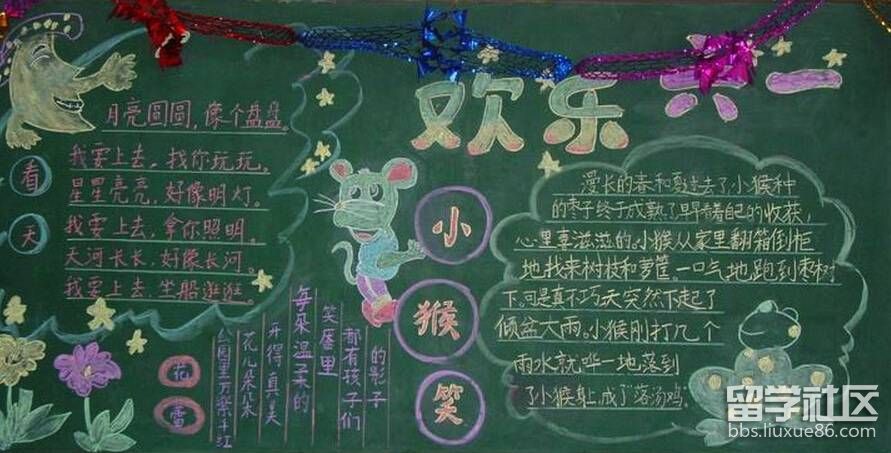 欢乐六一
看天
月亮圆圆,像个盘盘。
我要上去,找你玩玩。
星星亮亮,好像明灯。
我要上去,拿你照明。
天河长长,好像长河。
我要上去,坐船逛逛。
花蕾
公园里万紫千红
花儿朵朵
开得真美
每朵温柔的
笑靥里
都有孩子们
的影子
小猴笑
漫长的春和夏过去了,小猴种
的枣子终于成熟了,看着自己的收获,
心里喜滋滋的。小猴从家里翻箱倒柜
地找来树枝和萝筐一口气地跑到枣树
下,可是真不巧天突然下起了
倾盆大雨。小猴刚打几个
雨水就哗一地落到
了小猴身上,成了落汤鸡。
留学社区
bbs.liuxue86.com